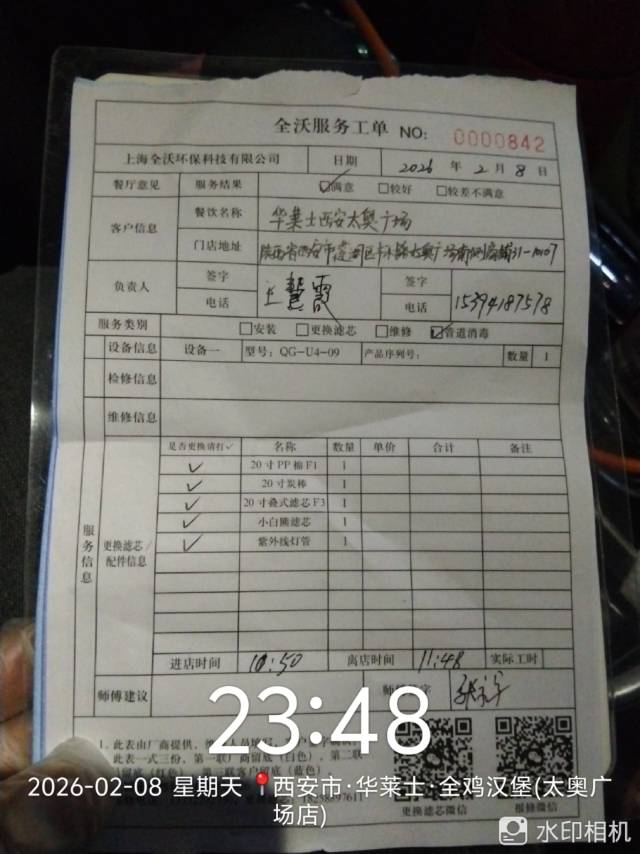 全沃服务工单 NO: 0000842
上海全沃环保科技有限公司 日期 2026 年 2 月 8 日
餐厅意见 服务结果 ☑满意 □较好 □较差不满意
客户信息 餐饮名称 华莱士西安太奥广场
门店地址 陕西省西安市
负责人 签字 王慧霞 签字
电话 电话 15394187578
服务类别 □安装 □更换滤芯 □维修 ☑管道消毒
设备信息 设备一 型号: QG-U4-09 产品序列号: 数量 1
检修信息
维修信息
服务信息
更换滤芯/配件信息
是否更换请打✓ 名称 数量 单价 合计 备注
✓ 20寸PP棉F1 1
✓ 20寸炭棒 1
✓ 20寸叠式滤芯F3 1
✓ 小白熊滤芯 1
✓ 紫外线灯管 1
进店时间 10:50 离店时间 11:48 实际工时
师傅建议
1. 此表由厂商提供,
此表一式三份,第一联厂商留底(白色),第二联
客户留底(蓝色)
更换滤芯微信 报修微信
23:48
2026-02-08 星期天 西安市·华莱士·全鸡汉堡(太奥广
场店)
水印相机